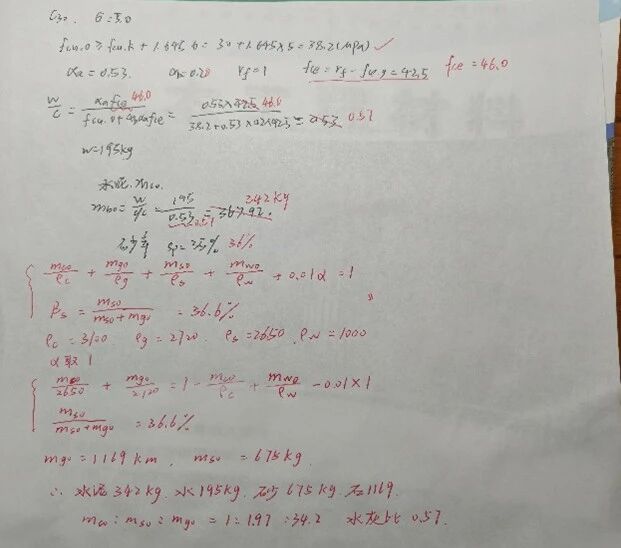 C30. σ=5.0
fcu.0 ≥ fcu.k + 1.645σ = 30 + 1.645×5 = 38.2(MPa) ✓
αa = 0.53. αb = 0.20 γf = 1 fce = γf · fce,g = 42.5 fce = 46.0
W/C = αafce 46.0 / fcu.0+αaαbfce = 0.53×42.5 46.0 / 38.2+0.53×0.2×42.5 = 0.53 0.57
W=195kg
水泥. mco.
mco = W / W/C = 195 / 0.53 0.57 = 367.92. 342kg
砂率 Sp=35% 36%
{ mco/ρc + mgo/ρg + mso/ρs + mwo/ρw + 0.01α = 1
βs = mso / mso+mgo = 36.6%
ρc = 3120. ρg = 2720. ρs = 2650. ρw = 1000
α取 1
{ mso/2650 + mgo/2720 = 1 - mco/ρc + mwo/ρw - 0.01×1
mso / mso+mgo = 36.6%
mgo = 1169 km, mso = 675kg.
∴ 水泥 342kg. 水 195kg. 砂 675kg. 石 1169.
mco : mso : mgo = 1 : 1.97 : 34.2 水灰比 0.57.